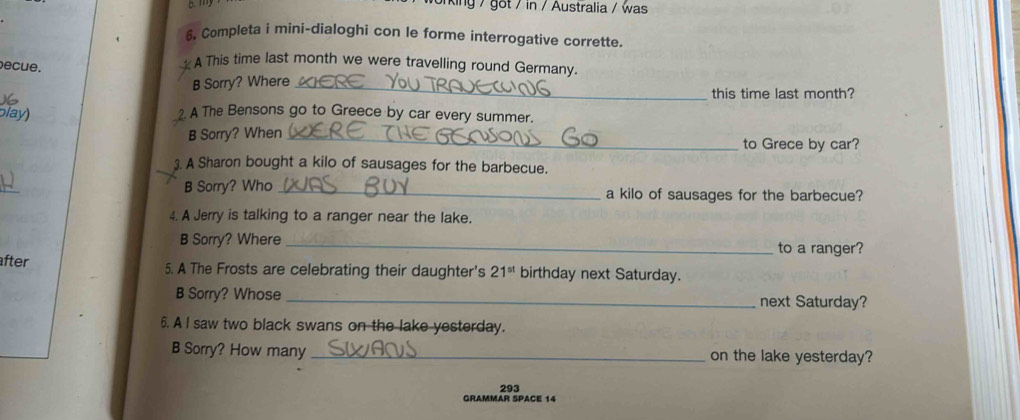 working / got / in / Australia / was
6. Completa i mini-dialoghi con le forme interrogative corrette.
1. A This time last month we were travelling round Germany.
B Sorry? Where WERE YOU TRAVELLING this time last month?
2. A The Bensons go to Greece by car every summer.
B Sorry? When WERE THE BENSONS GO to Grece by car?
3. A Sharon bought a kilo of sausages for the barbecue.
B Sorry? Who WAS BUY a kilo of sausages for the barbecue?
4. A Jerry is talking to a ranger near the lake.
B Sorry? Where to a ranger?
5. A The Frosts are celebrating their daughter's 21st birthday next Saturday.
B Sorry? Whose next Saturday?
6. A I saw two black swans on the lake yesterday.
B Sorry? How many SWANS on the lake yesterday?
293
GRAMMAR SPACE 14
becue.
play)
H
after